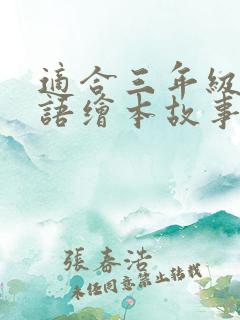 適合三年級
語繪本故事
張春浩
未经同意禁止转载